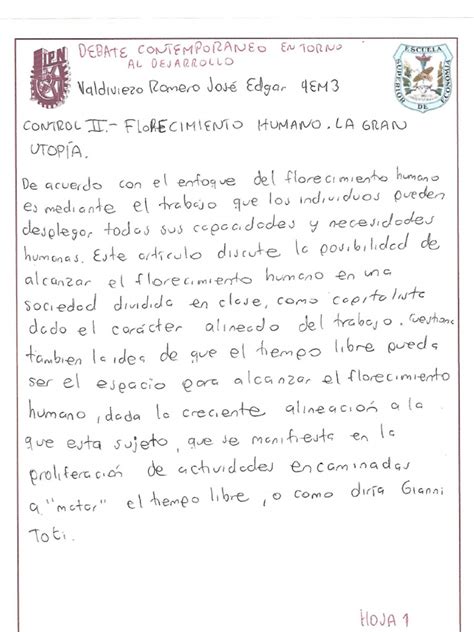 IPN
DEBATE CONTEMPORANEO EN TORNO
AL DESARROLLO
ESCUELA SUPERIOR DE ECONOMIA
Valdiviezo Romero José Edgar 4EM3
CONTROL II.- FLORECIMIENTO HUMANO. LA GRAN
UTOPÍA.
De acuerdo con el enfoque del florecimiento humano
es mediante el trabajo que los individuos pueden
desplegar todas sus capacidades y necesidades
humanas. Este artículo discute la posibilidad de
alcanzar el florecimiento humano en una
sociedad dividida en clase, como capitalista
dado el carácter alineado del trabajo. Cuestiona
tambien la idea de que el tiempo libre pueda
ser el espacio para alcanzar el florecimiento
humano, dada la creciente alineación a la
que esta sujeto, que se manifiesta en la
proliferación de actividades encaminadas
a "matar" el tiempo libre, o como diría Gianni
Toti.
HOJA 1